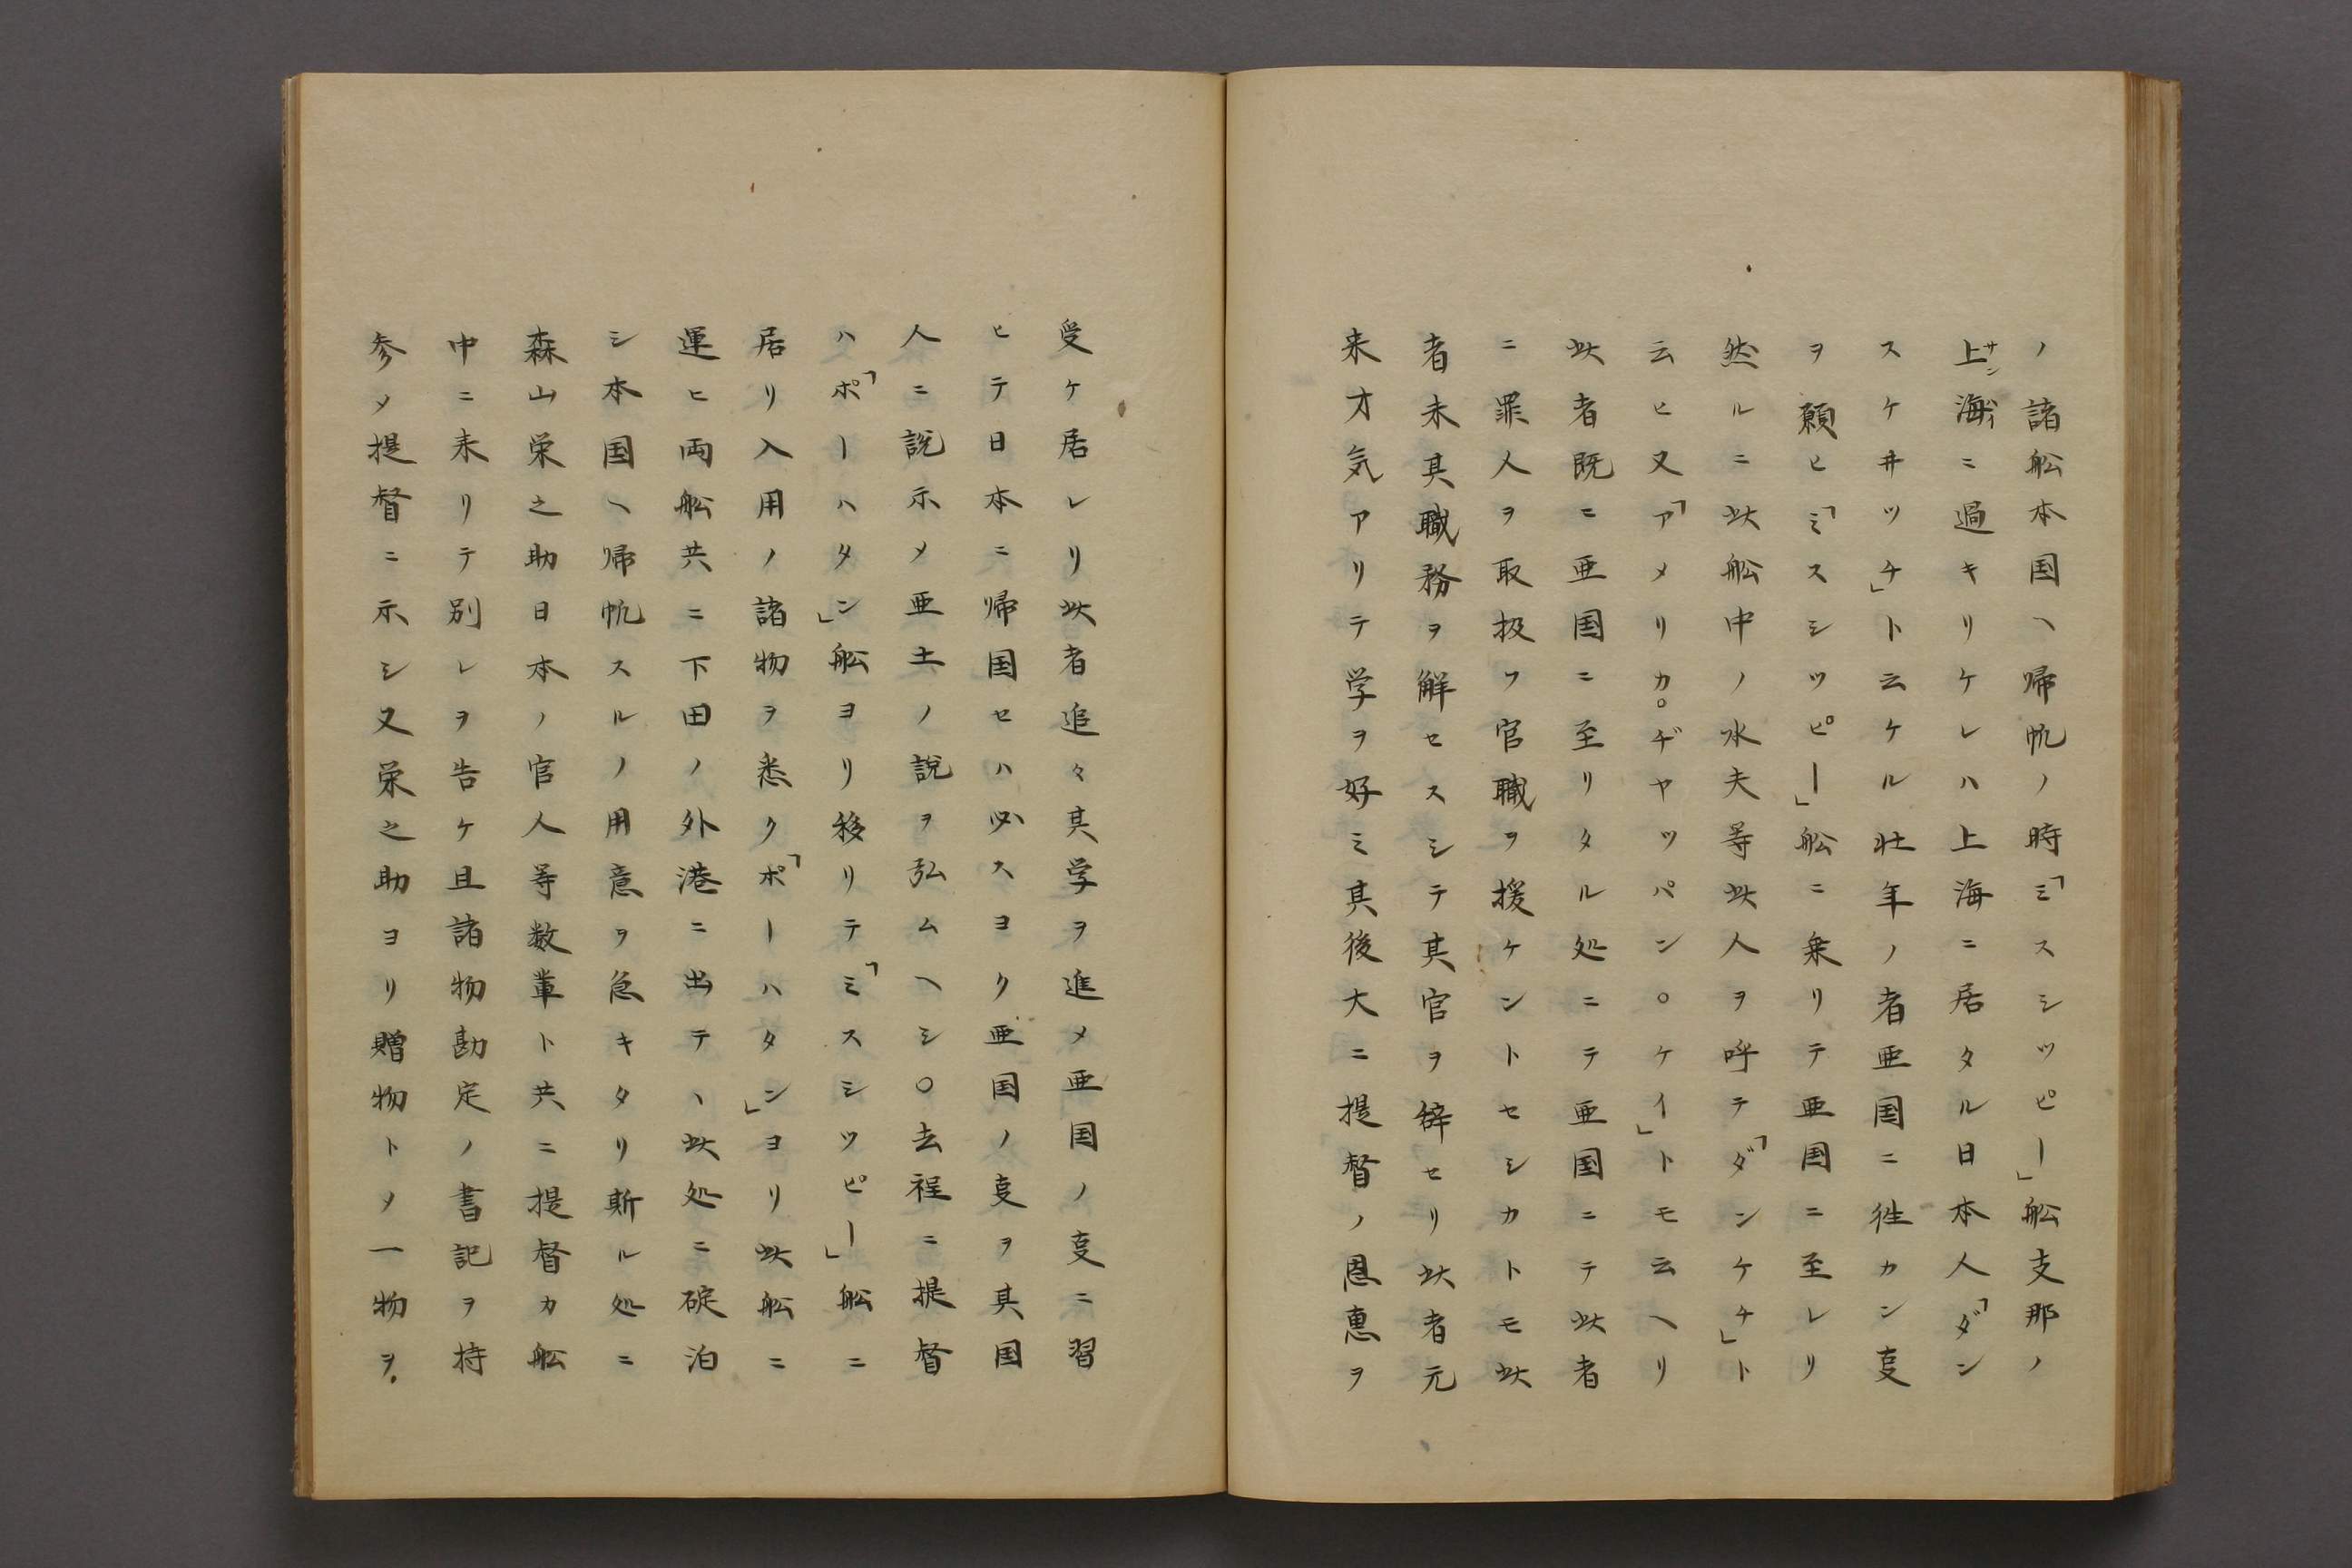 ノ諸舩本国ヘ帰帆ノ時「ミスシツピー」舩支那ノ
上海ニ過キリケレハ上海ニ居タル日本人「ダン
サンハイ
スケ井ツチ」ト云ケル壮年ノ者亜国ニ徃カン叓
ヲ願ヒ「ミスシツピー」舩ニ乗リテ亜国ニ至レリ
然ルニ此舩中ノ水夫等此人ヲ呼テ「ダンケチ」ト
云ヒ又「アメリカ。ヂヤツパン。ケイ」トモ云ヘリ
此者既ニ亜国ニ至リタル処ニテ亜国ニテ此者
ニ罪人ヲ取扱フ官職ヲ援ケントセシカトモ此
者未其職務ヲ解セスシテ其官ヲ辞セリ此者元
来才気アリテ学ヲ好ミ其後大ニ提督ノ恩恵ヲ
受ケ居レリ此者追々其学ヲ進メ亜国ノ叓ニ習
ヒテ日本ニ帰国セハ必スヨク亜国ノ叓ヲ其国
人ニ説示メ亜土ノ説ヲ弘ムヘシ○去程ニ提督
ハ「ポーハタン」舩ヨリ移リテ「ミスシツピー」舩ニ
居リ入用ノ諸物ヲ悉ク「ポーハタン」ヨリ此舩ニ
運ヒ両舩共ニ下田ノ外港ニ出テヽ此処ニ碇泊
シ本国ヘ帰帆スルノ用意ヲ急キタリ斯ル処ニ
森山栄之助日本ノ官人等数輩ト共ニ提督カ舩
中ニ来リテ別レヲ告ケ且諸物勘定ノ書記ヲ持
参メ提督ニ示シ又栄之助ヨリ贈物トメ一物ヲ.